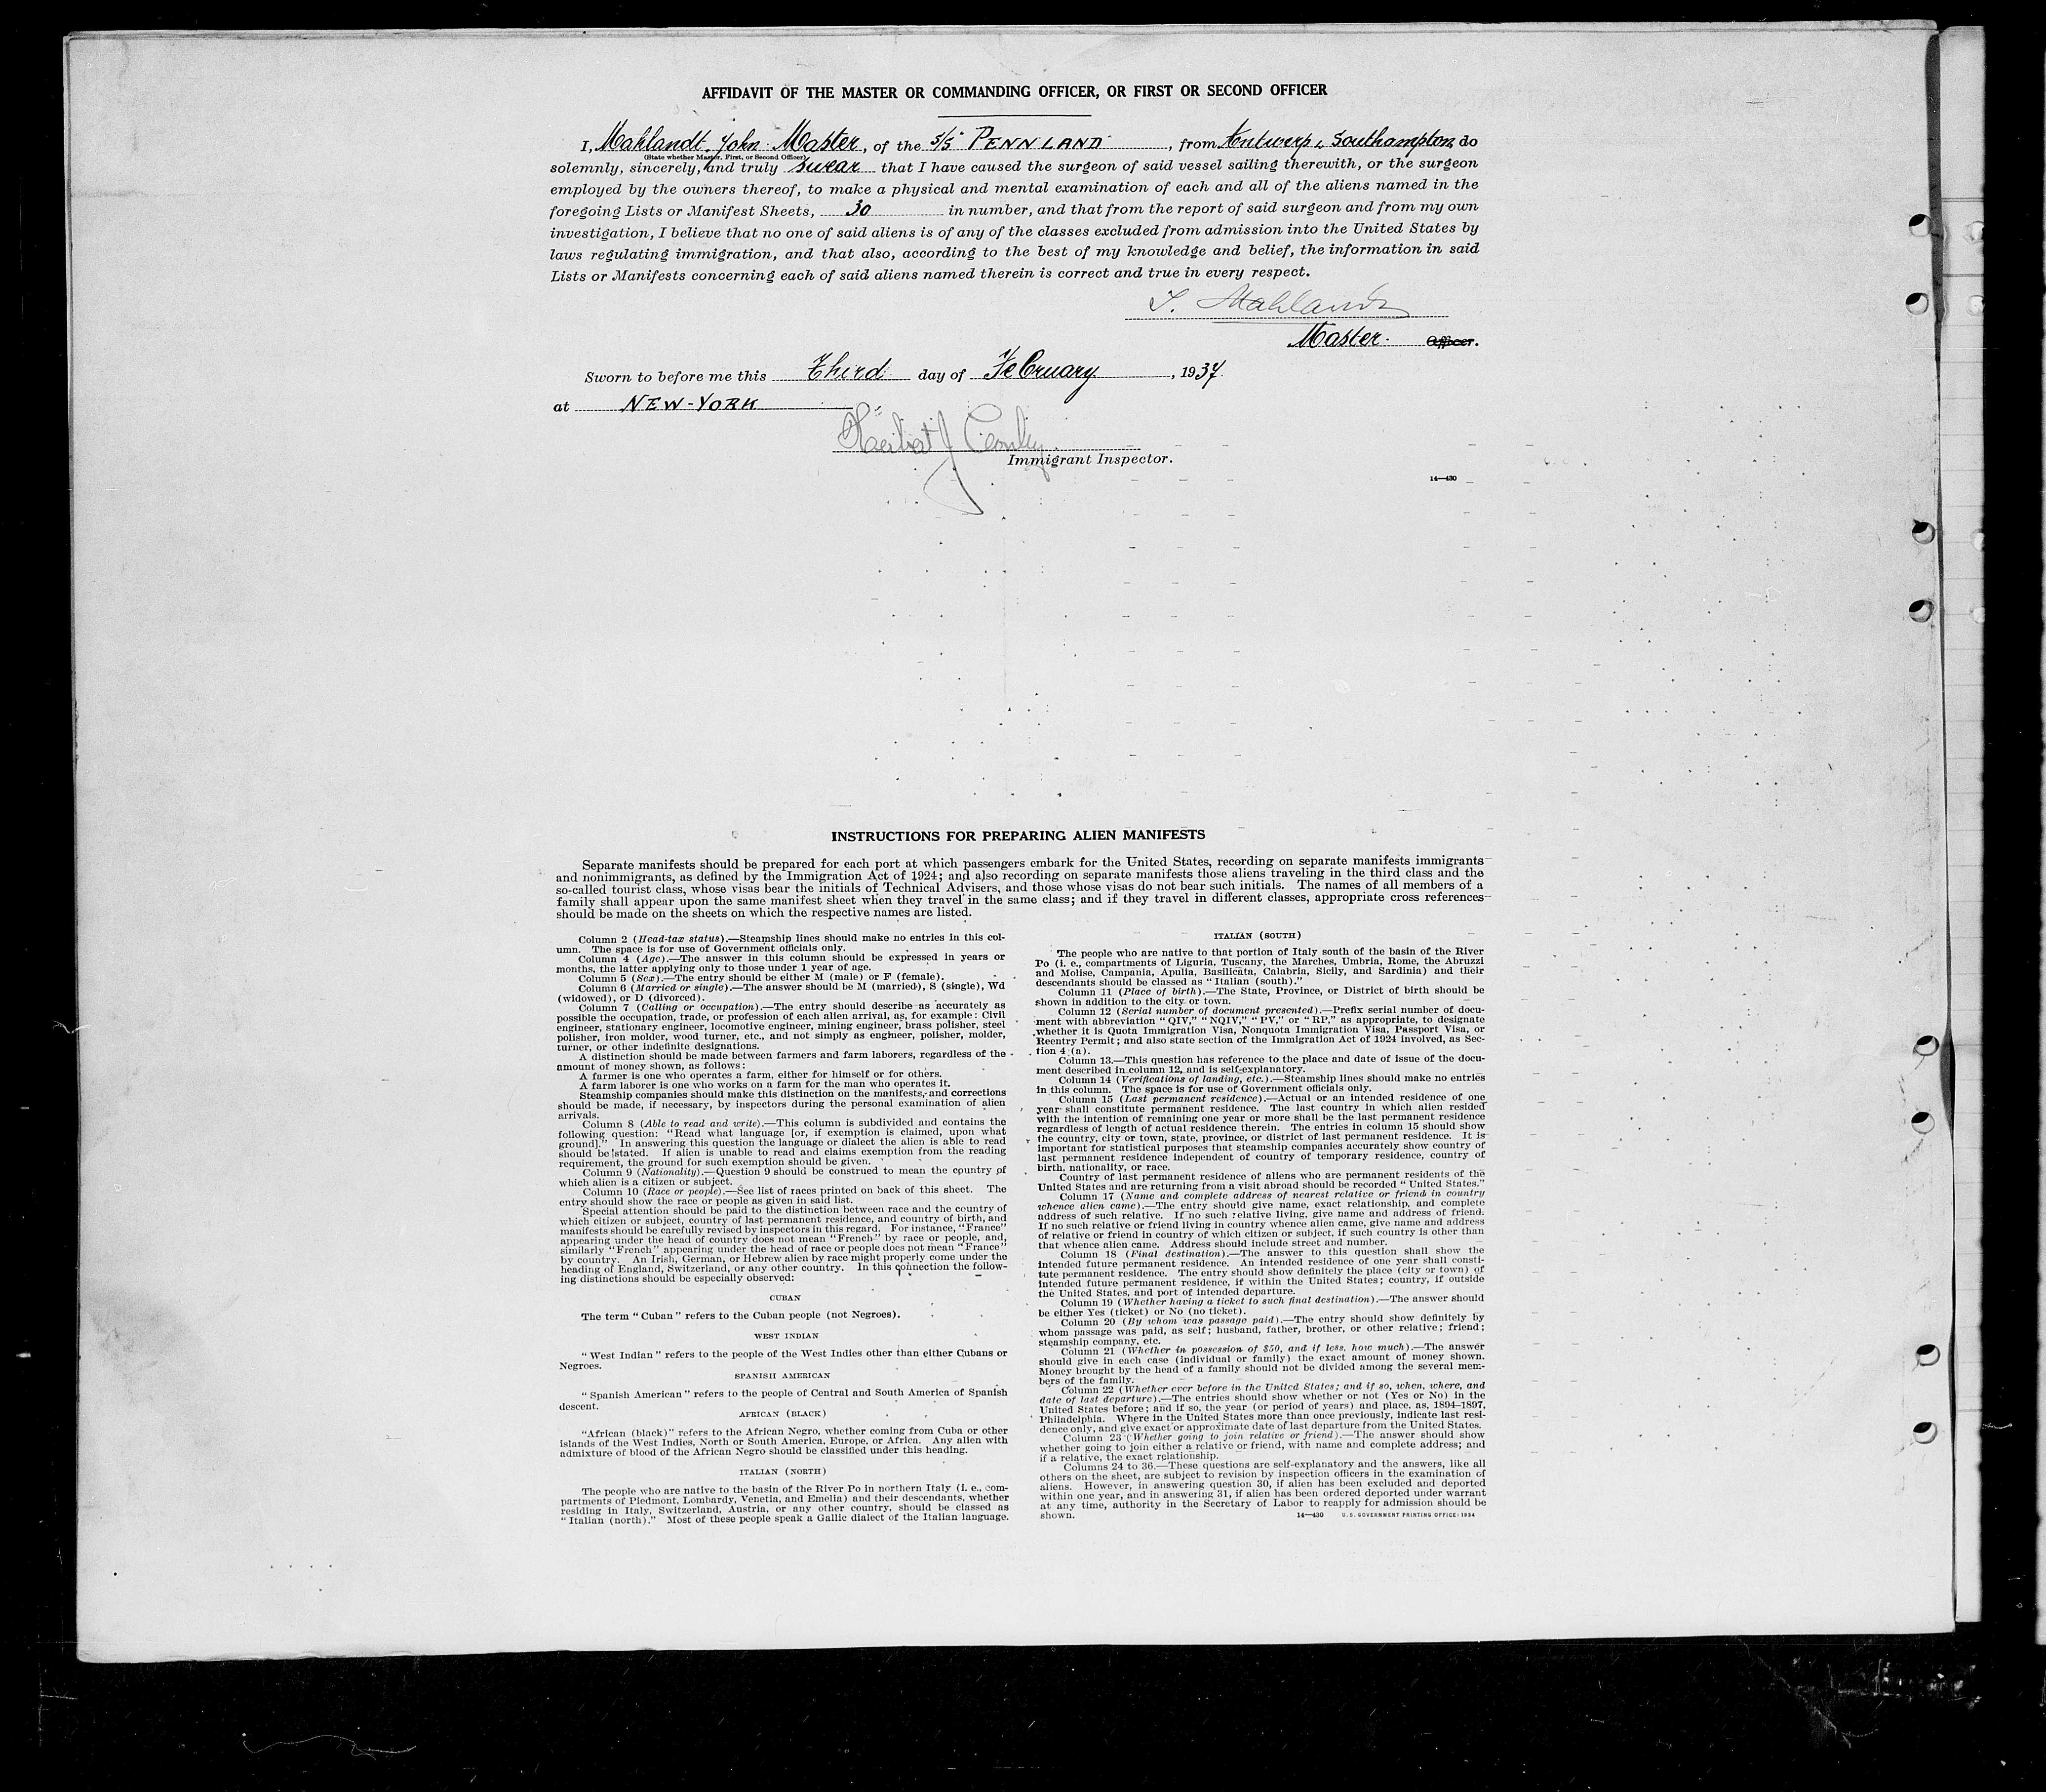 AFFIDAVIT OF THE MASTER OR COMMANDING OFFICER, OR FIRST OR SECOND OFFICER
I, Mahlandt, John Master, of the S/S PENNLAND, from Antwerp & Southampton, do
(State whether Master, First, or Second Officer)
solemnly, sincerely, and truly swear that I have caused the surgeon of said vessel sailing therewith, or the surgeon
employed by the owners thereof, to make a physical and mental examination of each and all of the aliens named in the
foregoing Lists or Manifest Sheets, 30 in number, and that from the report of said surgeon and from my own
investigation, I believe that no one of said aliens is of any of the classes excluded from admission into the United States by
laws regulating immigration, and that also, according to the best of my knowledge and belief, the information in said
Lists or Manifests concerning each of said aliens named therein is correct and true in every respect.
Mahlandt
Master. Officer.
Sworn to before me this Third day of February, 1937.
at NEW-YORK
Immigrant Inspector.
14—430
INSTRUCTIONS FOR PREPARING ALIEN MANIFESTS
Separate manifests should be prepared for each port at which passengers embark for the United States, recording on separate manifests immigrants
and nonimmigrants, as defined by the Immigration Act of 1924; and also recording on separate manifests those aliens traveling in the third class and the
so-called tourist class, whose visas bear the initials of Technical Advisers, and those whose visas do not bear such initials. The names of all members of a
family shall appear upon the same manifest sheet when they travel in the same class; and if they travel in different classes, appropriate cross references
should be made on the sheets on which the respective names are listed.
Column 2 (Head-tax status).—Steamship lines should make no entries in this col-
umn. The space is for use of Government officials only.
Column 4 (Age).—The answer in this column should be expressed in years or
months, the latter applying only to those under 1 year of age.
Column 5 (Sex).—The entry should be either M (male) or F (female).
Column 6 (Married or single).—The answer should be M (married), S (single), Wd
(widowed), or D (divorced).
Column 7 (Calling or occupation).—The entry should describe as accurately as
possible the occupation, trade, or profession of each alien arrival, as, for example: Civil
engineer, stationary engineer, locomotive engineer, mining engineer, brass polisher, steel
polisher, iron molder, wood turner, etc., and not simply as engineer, polisher, molder,
turner, or other indefinite designations.
A distinction should be made between farmers and farm laborers, regardless of the
amount of money shown, as follows:
A farmer is one who operates a farm, either for himself or for others.
A farm laborer is one who works on a farm for the man who operates it.
Steamship companies should make this distinction on the manifests, and corrections
should be made, if necessary, by inspectors during the personal examination of alien
arrivals.
Column 8 (Able to read and write).—This column is subdivided and contains the
following question: "Read what language [or, if exemption is claimed, upon what
ground]." In answering this question the language or dialect the alien is able to read
should be stated. If alien is unable to read and claims exemption from the reading
requirement, the ground for such exemption should be given.
Column 9 (Nationality).—Question 9 should be construed to mean the country of
which alien is a citizen or subject.
Column 10 (Race or people).—See list of races printed on back of this sheet. The
entry should show the race or people as given in said list.
Special attention should be paid to the distinction between race and the country of
which citizen or subject, country of last permanent residence, and country of birth, and
manifests should be carefully revised by inspectors in this regard. For instance, "France"
appearing under the head of country does not mean "French" by race or people, and,
similarly "French" appearing under the head of race or people does not mean "France"
by country. An Irish, German, or Hebrew alien by race might properly come under the
heading of England, Switzerland, or any other country. In this connection the follow-
ing distinctions should be especially observed:
CUBAN
The term "Cuban" refers to the Cuban people (not Negroes).
WEST INDIAN
"West Indian" refers to the people of the West Indies other than either Cubans or
Negroes.
SPANISH AMERICAN
"Spanish American" refers to the people of Central and South America of Spanish
descent.
AFRICAN (BLACK)
"African (black)" refers to the African Negro, whether coming from Cuba or other
islands of the West Indies, North or South America, Europe, or Africa. Any alien with
admixture of blood of the African Negro should be classified under this heading.
ITALIAN (NORTH)
The people who are native to the basin of the River Po in northern Italy (i. e., com-
partments of Piedmont, Lombardy, Venetia, and Emelia) and their descendants, whether
residing in Italy, Switzerland, Austria, or any other country, should be classed as
"Italian (north)." Most of these people speak a Gallic dialect of the Italian language.
ITALIAN (SOUTH)
The people who are native to that portion of Italy south of the basin of the River
Po (i. e., compartments of Liguria, Tuscany, the Marches, Umbria, Rome, the Abruzzi
and Molise, Campania, Apulia, Basilicata, Calabria, Sicily, and Sardinia) and their
descendants should be classed as "Italian (south)."
Column 11 (Place of birth).—The State, Province, or District of birth should be
shown in addition to the city or town.
Column 12 (Serial number of document presented).—Prefix serial number of docu-
ment with abbreviation "QIV," "NQIV," "PV," or "RP," as appropriate, to designate
whether it is Quota Immigration Visa, Nonquota Immigration Visa, Passport Visa, or
Reentry Permit; and also state section of the Immigration Act of 1924 involved, as Sec-
tion 4 (a).
Column 13.—This question has reference to the place and date of issue of the docu-
ment described in column 12, and is self-explanatory.
Column 14 (Verifications of landing, etc.).—Steamship lines should make no entries
in this column. The space is for use of Government officials only.
Column 15 (Last permanent residence).—Actual or an intended residence of one
year shall constitute permanent residence. The last country in which alien resided
with the intention of remaining one year or more shall be the last permanent residence
regardless of length of actual residence therein. The entries in column 15 should show
the country, city or town, state, province, or district of last permanent residence. It is
important for statistical purposes that steamship companies accurately show country of
last permanent residence independent of country of temporary residence, country of
birth, nationality, or race.
Country of last permanent residence of aliens who are permanent residents of the
United States and are returning from a visit abroad should be recorded "United States."
Column 17 (Name and complete address of nearest relative or friend in country
whence alien came).—The entry should give name, exact relationship, and complete
address of such relative. If no such relative living, give name and address of friend.
If no such relative or friend living in country whence alien came, give name and address
of relative or friend in country of which citizen or subject, if such country is other than
that whence alien came. Address should include street and number.
Column 18 (Final destination).—The answer to this question shall show the
intended future permanent residence. An intended residence of one year shall consti-
tute permanent residence. The entry should show definitely the place (city or town) of
intended future permanent residence, if within the United States; country, if outside
the United States, and port of intended departure.
Column 19 (Whether having a ticket to such final destination).—The answer should
be either Yes (ticket) or No (no ticket).
Column 20 (By whom was passage paid).—The entry should show definitely by
whom passage was paid, as self; husband, father, brother, or other relative; friend;
steamship company, etc.
Column 21 (Whether in possession of $50, and if less, how much).—The answer
should give in each case (individual or family) the exact amount of money shown.
Money brought by the head of a family should not be divided among the several mem-
bers of the family.
Column 22 (Whether ever before in the United States; and if so, when, where, and
date of last departure).—The entries should show whether or not (Yes or No) in the
United States before; and if so, the year (or period of years) and place, as, 1894–1897,
Philadelphia. Where in the United States more than once previously, indicate last resi-
dence only, and give exact or approximate date of last departure from the United States.
Column 23 (Whether going to join relative or friend).—The answer should show
whether going to join either a relative or friend, with name and complete address; and
if a relative, the exact relationship.
Columns 24 to 36.—These questions are self-explanatory and the answers, like all
others on the sheet, are subject to revision by inspection officers in the examination of
aliens. However, in answering question 30, if alien has been excluded and deported
within one year, and in answering 31, if alien has been ordered deported under warrant
at any time, authority in the Secretary of Labor to reapply for admission should be
shown.
14—430 U.S. GOVERNMENT PRINTING OFFICE: 1934